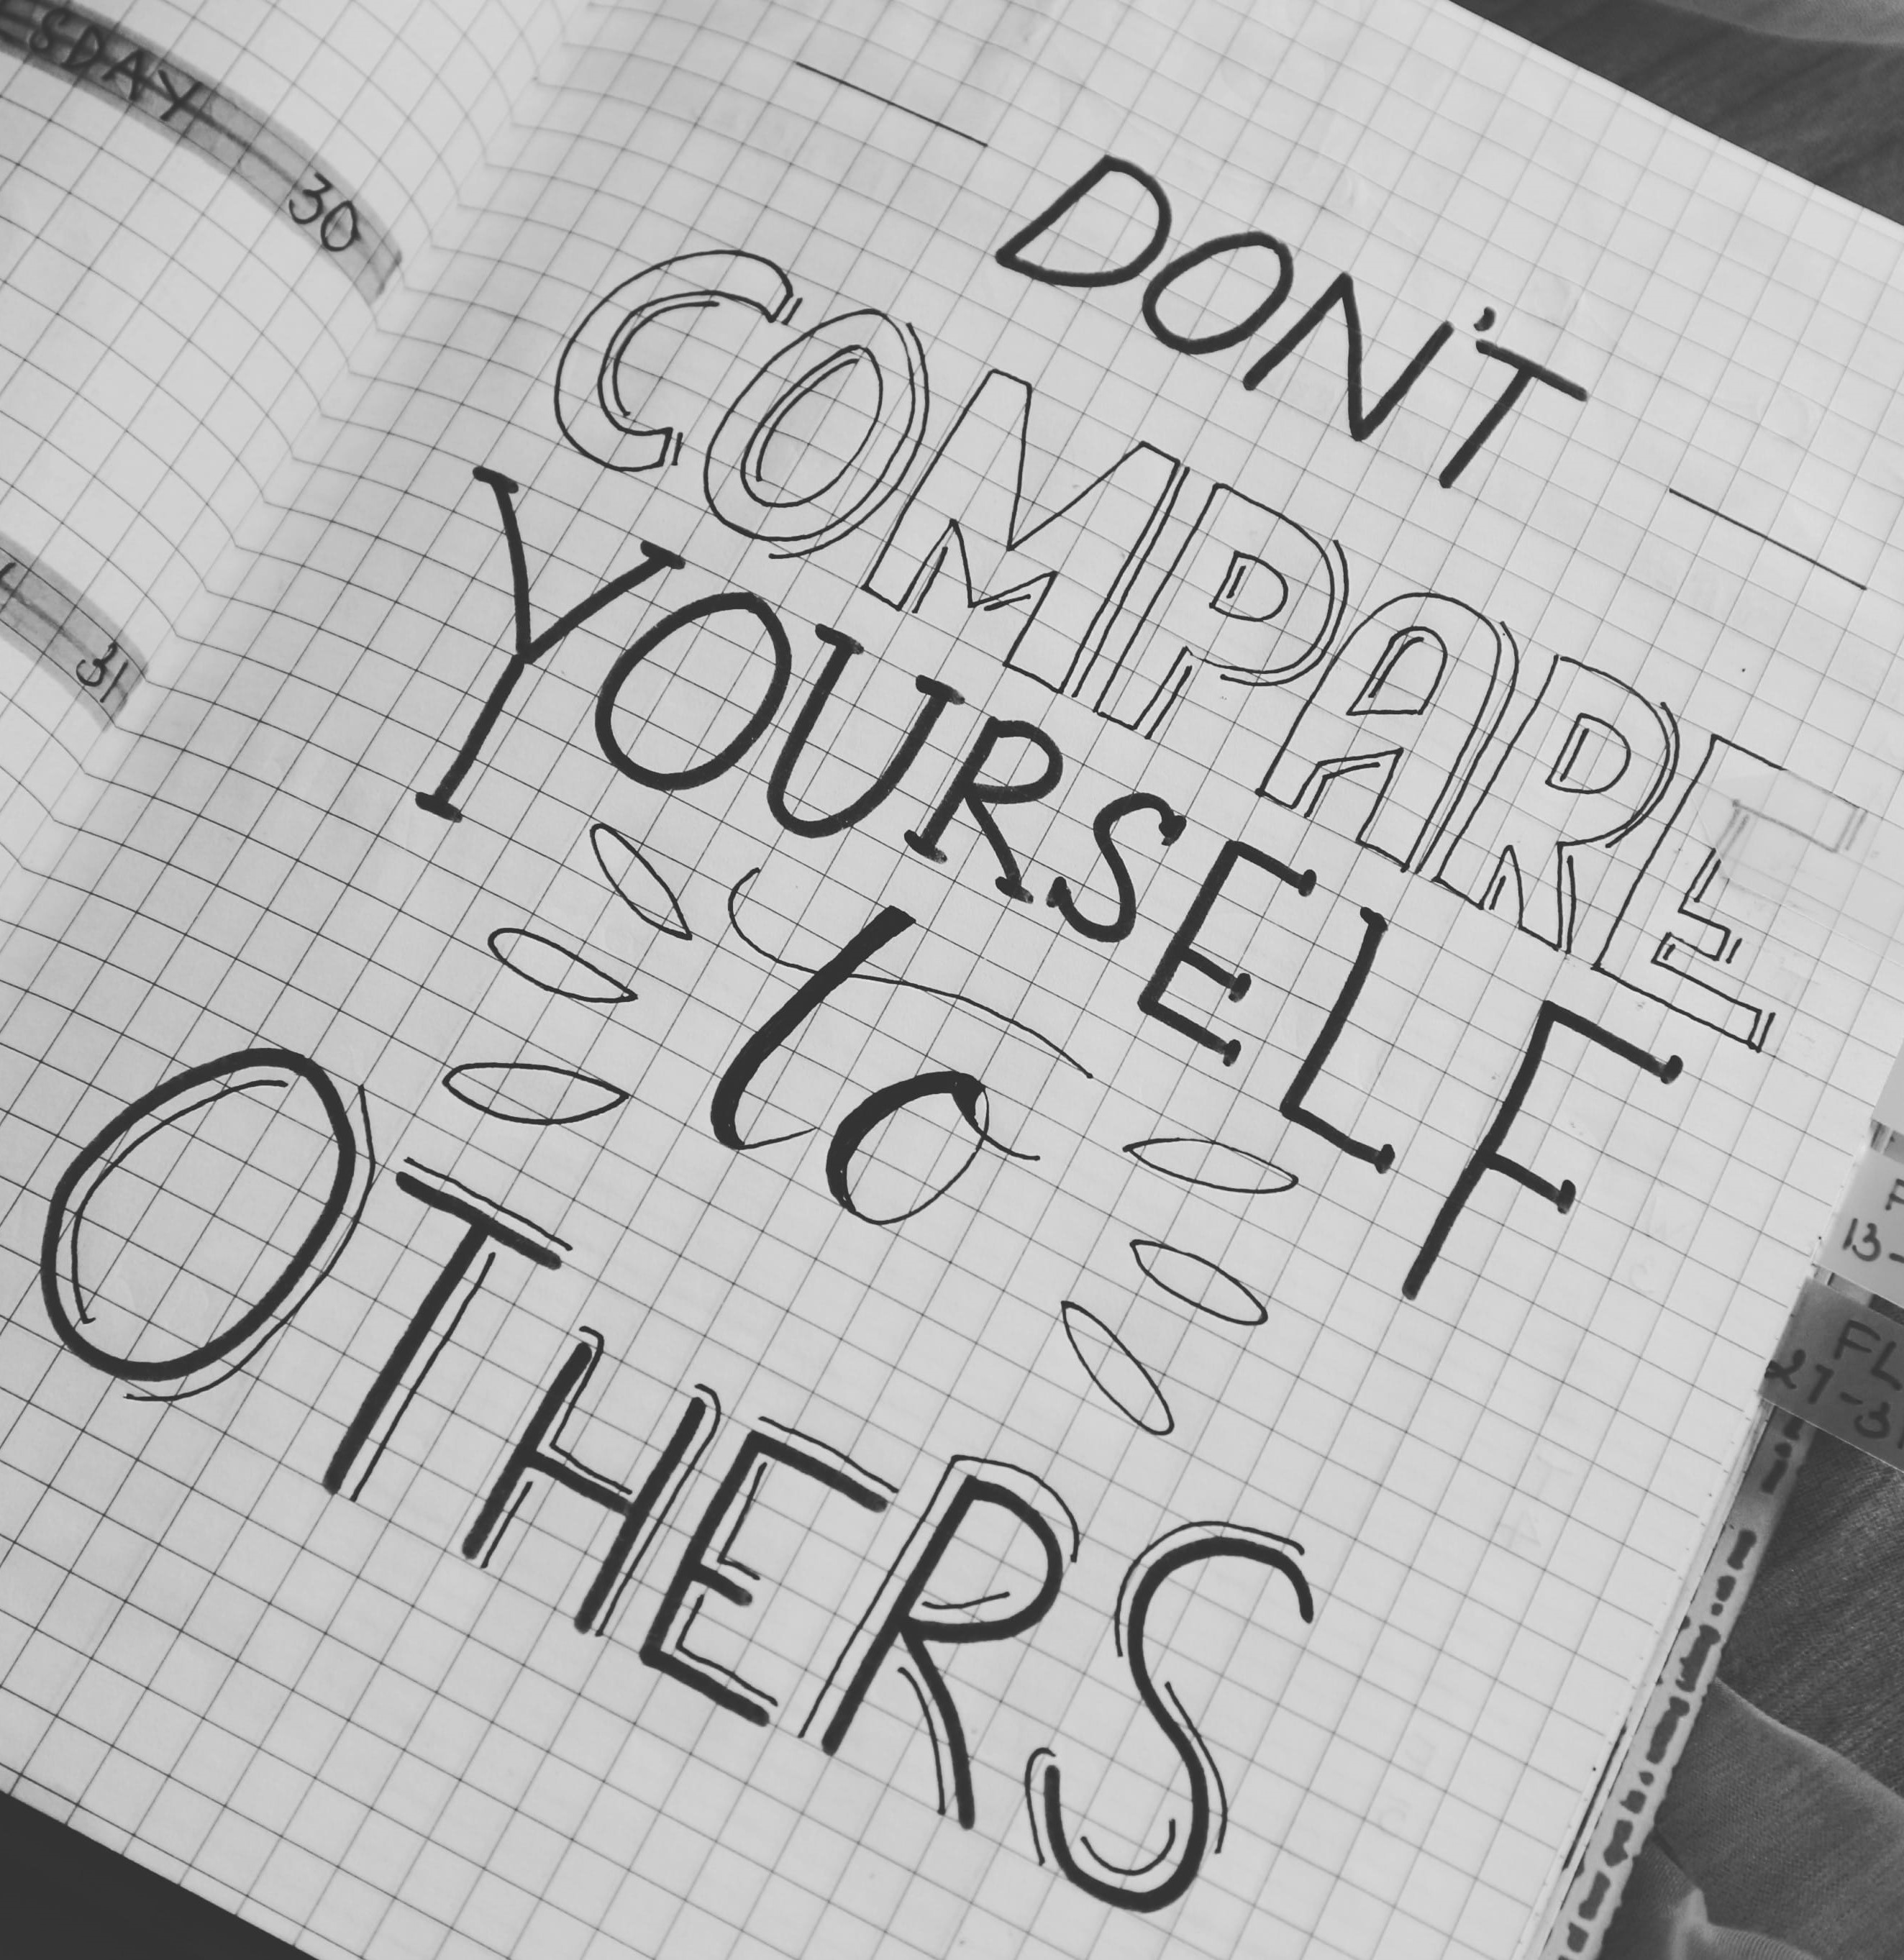 30
31
DON'T
COMPARE
YOURSELF
to
OTHERS
13-
FL
27-3